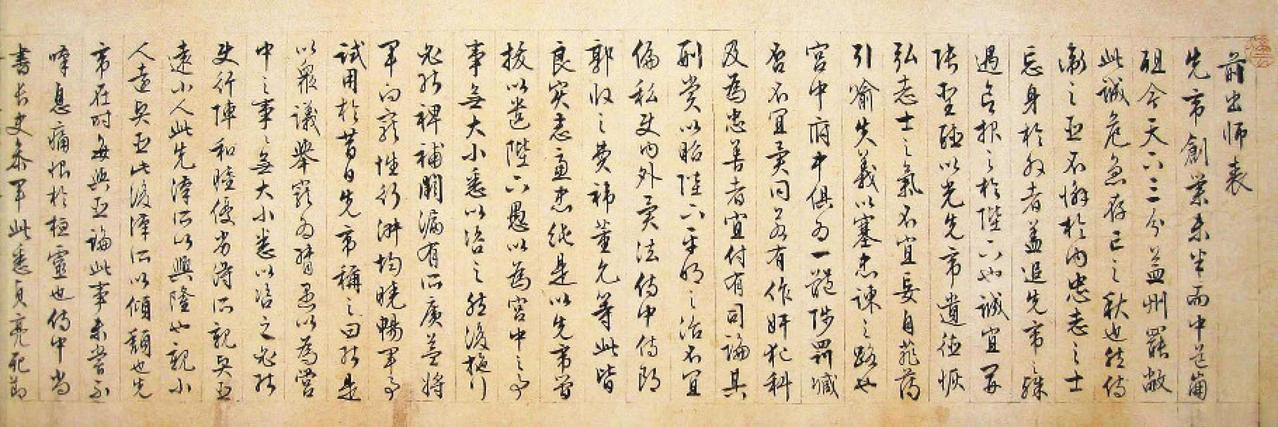 前出师表
先帝創業未半而中道崩
殂今天下三分益州罷敝
此誠危急存亡之秋也然侍
衛之臣不懈於内忠志之士
忘身於外者盖追先帝之殊
遇欲報之於陛下也誠宜開
張聖聴以光先帝遺德恢
弘志士之氣不宜妄自菲薄
引喻失義以塞忠諫之路也
宮中府中俱為一體陟罰臧
否不宜異同若有作奸犯科
及為忠善者宜付有司論其
刑賞以昭陛下平明之治不宜
偏私使内外異法侍中侍郎
郭攸之費禕董允等此皆
良實志慮忠純是以先帝簡
拔以遺陛下愚以為宮中之事
事無大小悉以咨之然後施行
必能裨補闕漏有所廣益將
軍向寵性行淑均曉暢軍事
試用於昔日先帝稱之曰能是
以衆議舉寵為督愚以為營
中之事事無大小悉以咨之必能
使行陣和睦優劣得所親賢臣
遠小人此先漢所以興隆也親小
人遠賢臣此後漢所以傾頹也先
帝在時每與臣論此事未嘗不
嘆息痛恨於桓靈也侍中尚
書長史參軍此悉貞亮死節